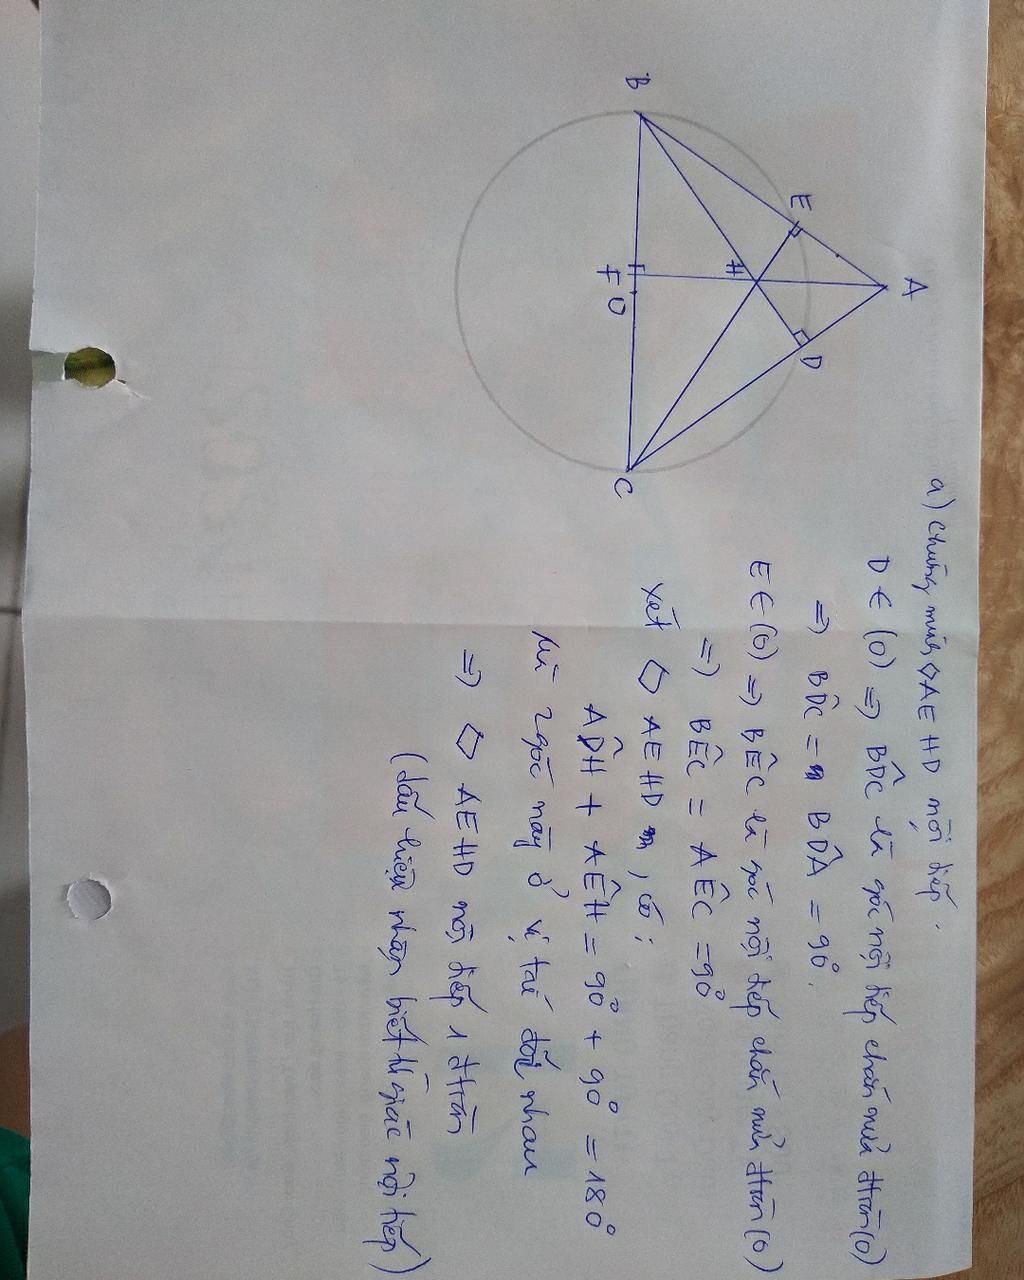 B
E
A
H
F
O
D
C
a) Chứng minh ◇AEHD nội tiếp.
D ∈ (O) ⇒ BD̂C là góc nội tiếp chắn nửa đtròn (O)
⇒ BD̂C = BD̂A = 90°.
E ∈ (O) ⇒ BÊC là góc nội tiếp chắn nửa đtròn (O)
⇒ BÊC = AÊC = 90°
Xét ◇ AEHD, có:
AD̂H + AÊH = 90° + 90° = 180°
Mà 2 góc này ở vị trí đối nhau
⇒ ◇ AEHD nội tiếp 1 đtròn
(dấu hiệu nhận biết tứ giác nội tiếp)